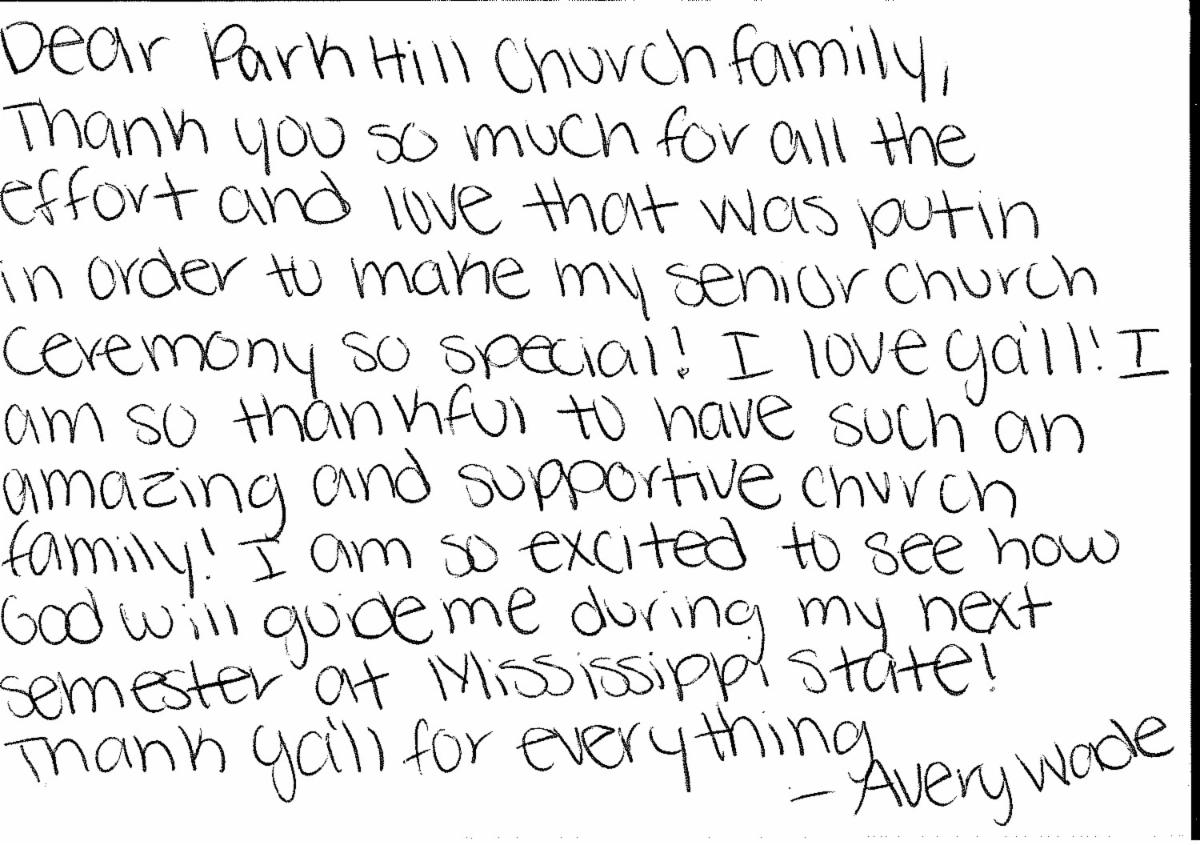 Dear Park Hill Church family,
Thank you so much for all the
effort and love that was put in
in order to make my senior church
ceremony so special! I love ya'll! I
am so thankful to have such an
amazing and supportive church
family! I am so excited to see how
God will guide me during my next
semester at Mississippi State!
Thank ya'll for everything
- Avery Wade